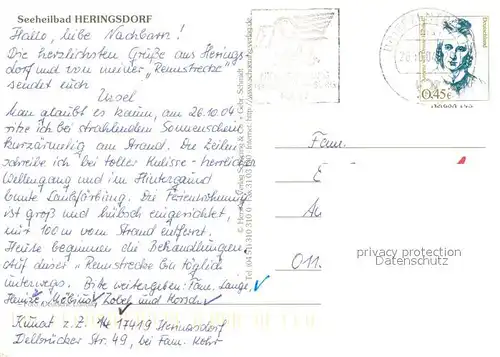 Seeheilbad HERINGSDORF
Hallo, liebe Nachbarn!
Die herzlichsten Grüße aus Herings-
dorf und von meiner „Rennstrecke"
sendet euch
Ursel
Man glaubt es kaum, am 26.10.04
sitze ich bei strahlendem Sonnenschein
kurzärmelig am Strand. Die Zeilen
schreibe ich bei toller Kulisse - herrlicher
Wellengang und im Hintergrund
bunte Laubfärbung. Die Ferienwohnung
ist groß und hübsch eingerichtet,
nur 100 m vom Strand entfernt.
Heute beginnen die Behandlungen.
Auf dieser „Rennstrecke bin täglich
unterwegs. Bitte weitergeben: Fam. Lange,
und
z. Z. 17419 Heringsdorf
Delbrücker Str. 49, bei Fam.
0,45€
Fam.
E
A
011
privacy protection
Datenschutz